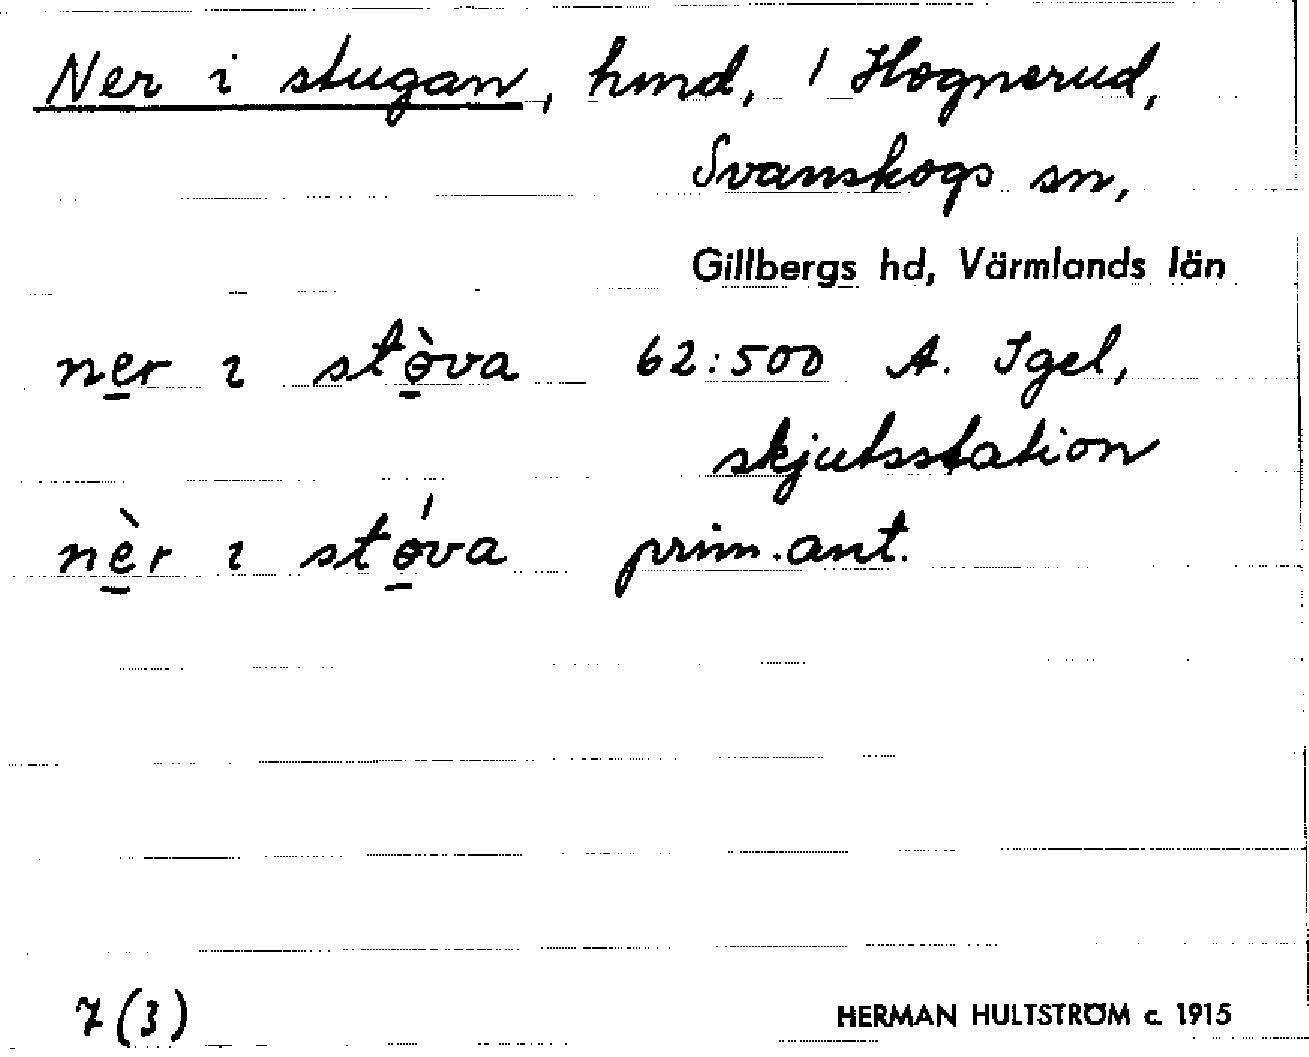 Ner i stugan, hmd, 1 Hognerud,
Svanskogs sn,
Gillbergs hd, Värmlands län
ner ı stòva 62:500 A. Igel,
skjutsstation
nèr ı stóva prim.ant.
7(3) HERMAN HULTSTRÖM c. 1915